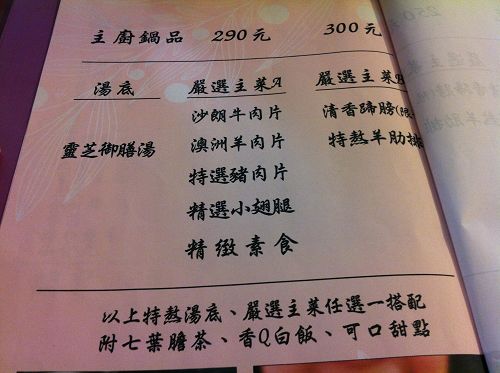 主廚鍋品 290元 300元
湯底 嚴選主菜A 嚴選主菜B
沙朗牛肉片 清香蹄膀(限
靈芝御膳湯 澳洲羊肉片 特熬羊肋排
特選豬肉片
精選小翅腿
精緻素食
以上特熬湯底、嚴選主菜任選一搭配
附七葉膽茶、香Q白飯、可口甜點